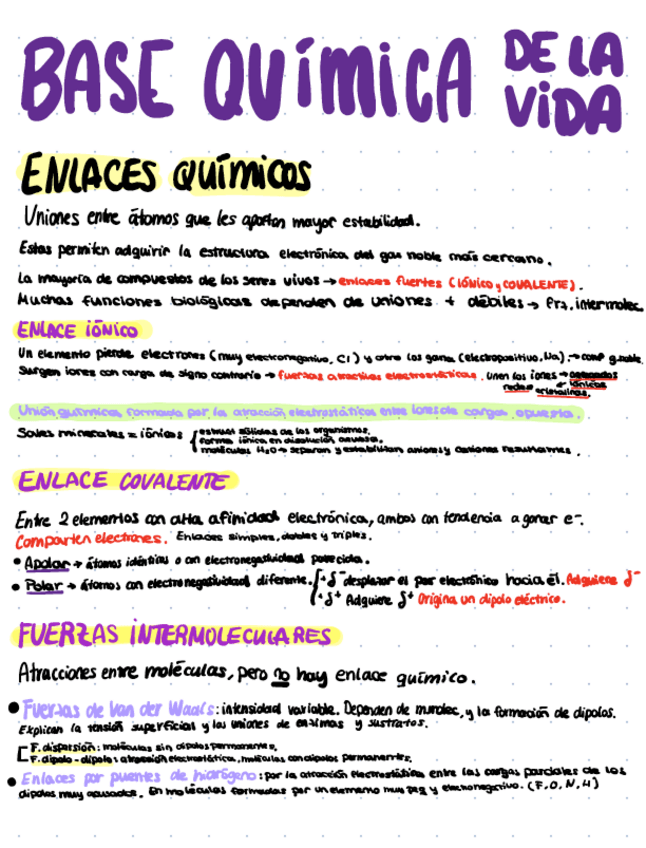 BASE QUÍMICA DE LA VIDA
ENLACES QUÍMICOS
Uniones entre átomos que les aportan mayor estabilidad.
Estas permiten adquirir la estructura electrónica del gas noble más cercano.
La mayoría de compuestos de los seres vivos → enlaces fuertes (IÓNICO y COVALENTE).
Muchas funciones biológicas dependen de uniones + débiles → frz. intermolec.
ENLACE IÓNICO
Un elemento pierde electrones (muy electronegativo, Cl) y otro los gana (electropositivo, Na). → conf g.noble.
Surgen iones con carga de signo contrario → fuerzas atractivas electrostáticas. Unen los iones →
redes cristalinas.
Unión química formada por la atracción electrostática entre iones de cargas opuesta.
Sales minerales = iónicas { estruct sólidas de los organismos.
forma iónica en disolución acuosa.
moléculas H₂O → separan y estabilizan aniones y cationes resultantes.
ENLACE COVALENTE
Entre 2 elementos con alta afinidad electrónica, ambos con tendencia a ganar e⁻.
Comparten electrones. Enlaces simples, dobles y triples.
• Apolar → átomos idénticos o con electronegatividad parecida.
• Polar → átomos con electronegatividad diferente. { +δ⁻ desplazar el par electrónico hacia él. Adquiere δ⁻
+δ⁺ Adquiere δ⁺ Origina un dipolo eléctrico.
FUERZAS INTERMOLECULARES
Atracciones entre moléculas, pero no hay enlace químico.
• Fuerzas de Van der Waals: intensidad variable. Dependen de mmolec, y la formación de dipolos.
Explican la tensión superficial y las uniones de enzimas y sustratos.
[ F. dispersión: moléculas sin dipolos permanentes.
F. dipolo - dipolo: atracción electrostática, moléculas con dipolos permanentes.
• Enlaces por puentes de hidrógeno: por la atracción electrostática entre las cargas parciales de los
dipolos muy acusados. En moléculas formadas por un elemento muy peq y electronegativo. (F, O, N, H)